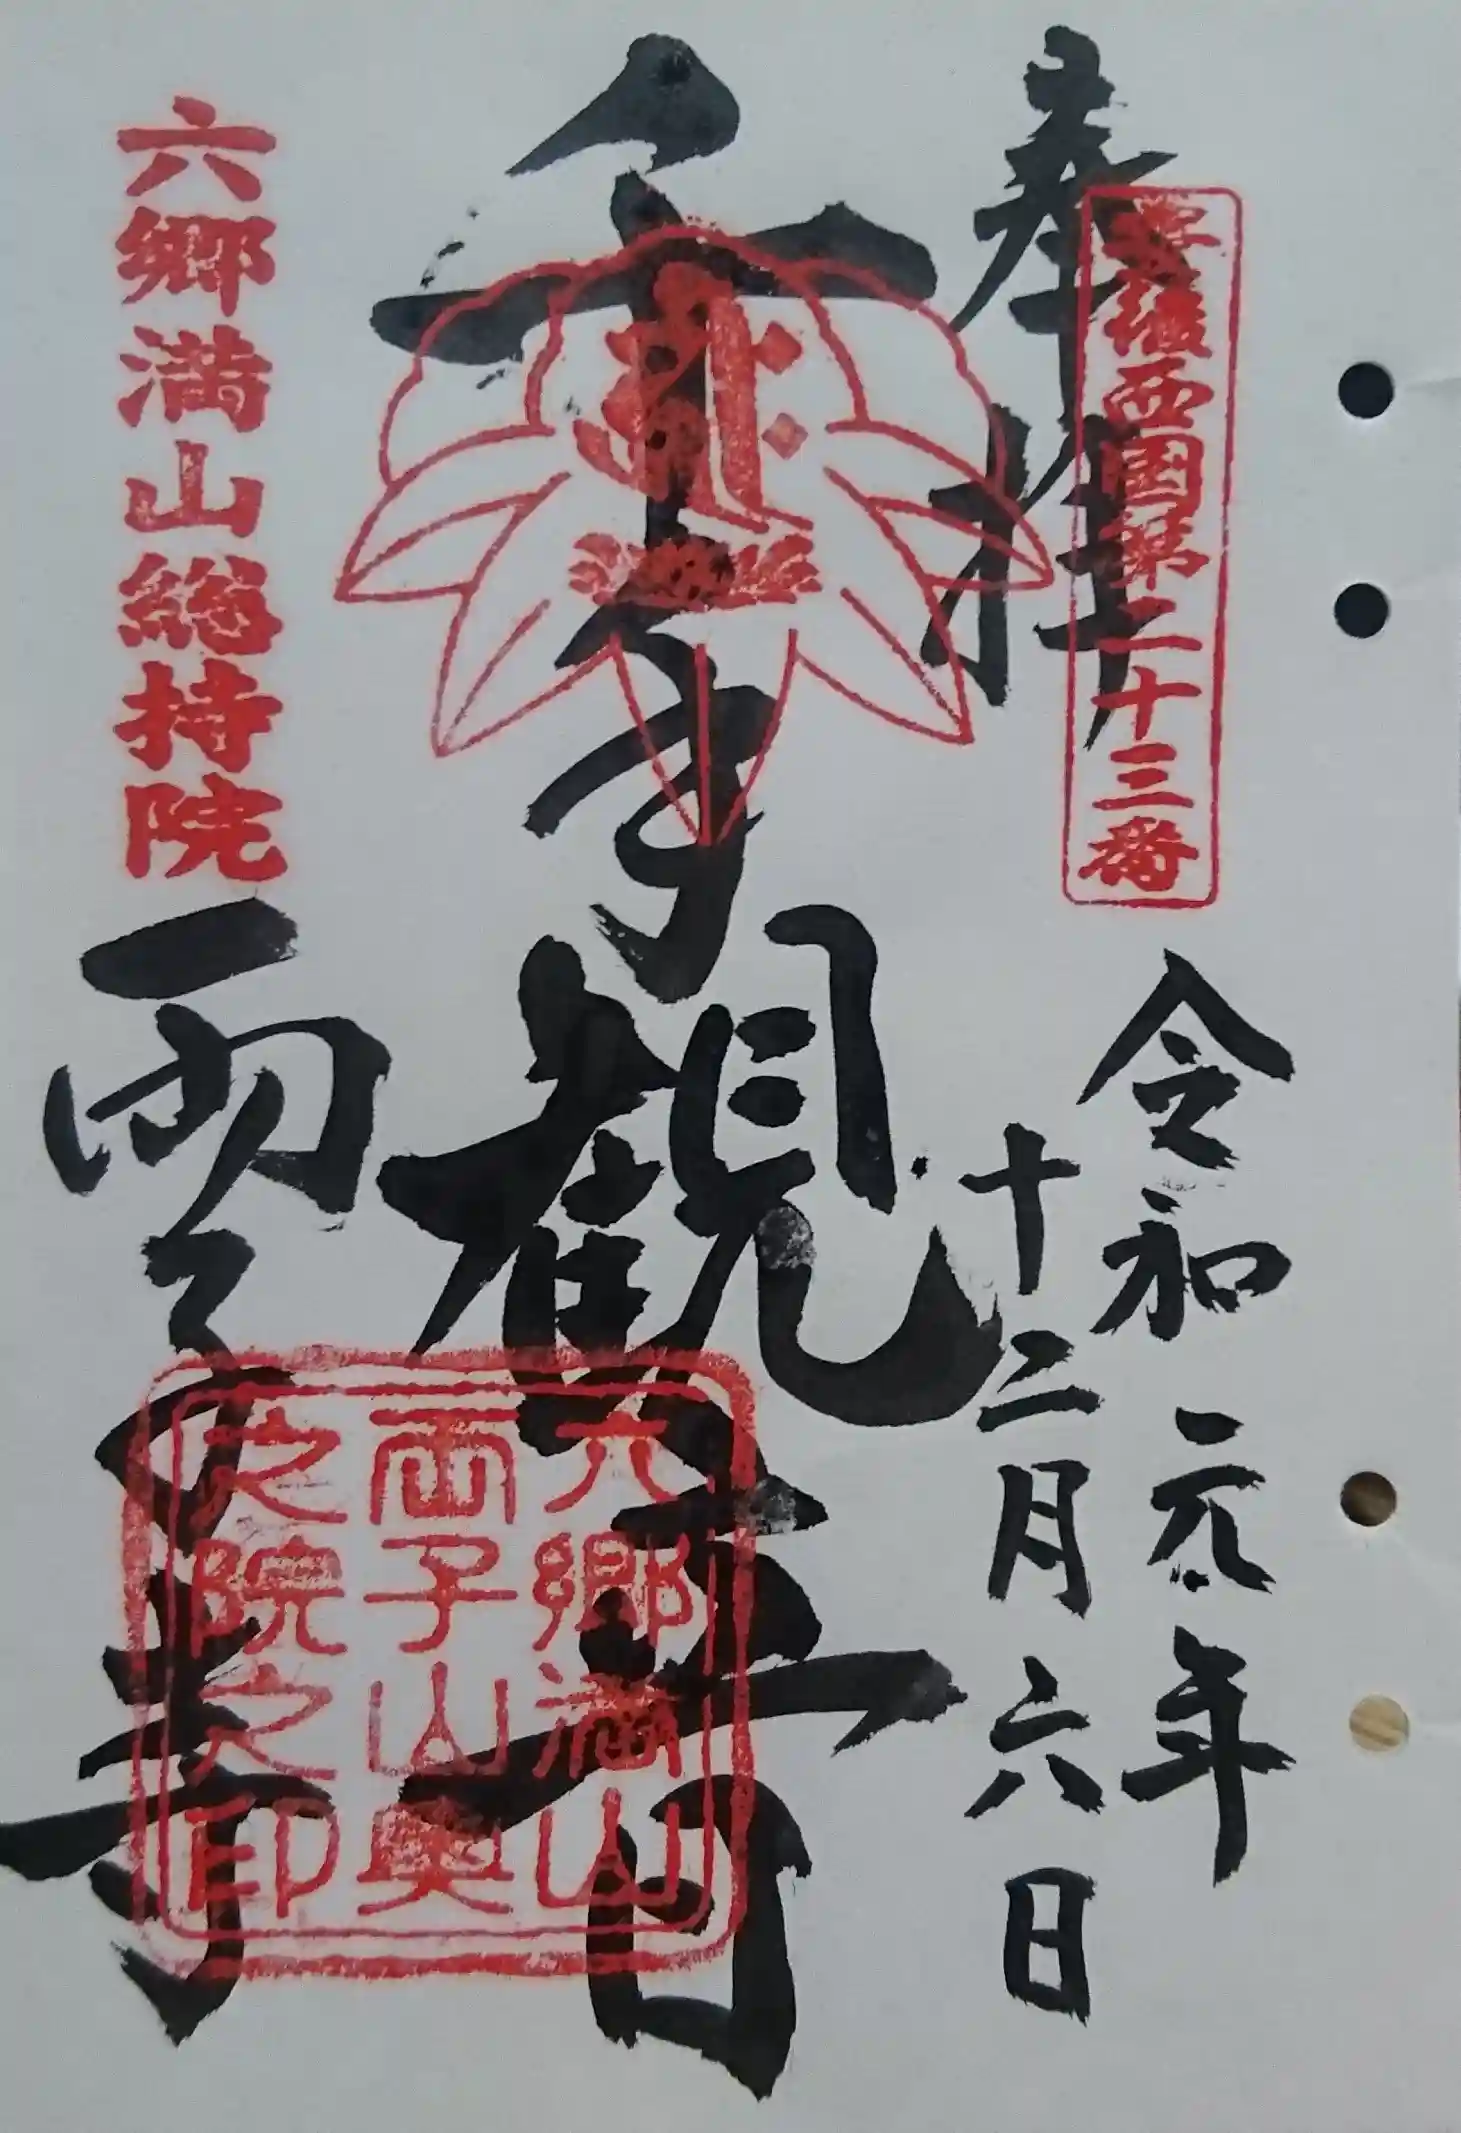 奉拝
豊後西国第二十三番
令和元年
十二月六日
千手観世音
六郷満山総持院
両子寺
六郷満山
両子山奥
之院之印